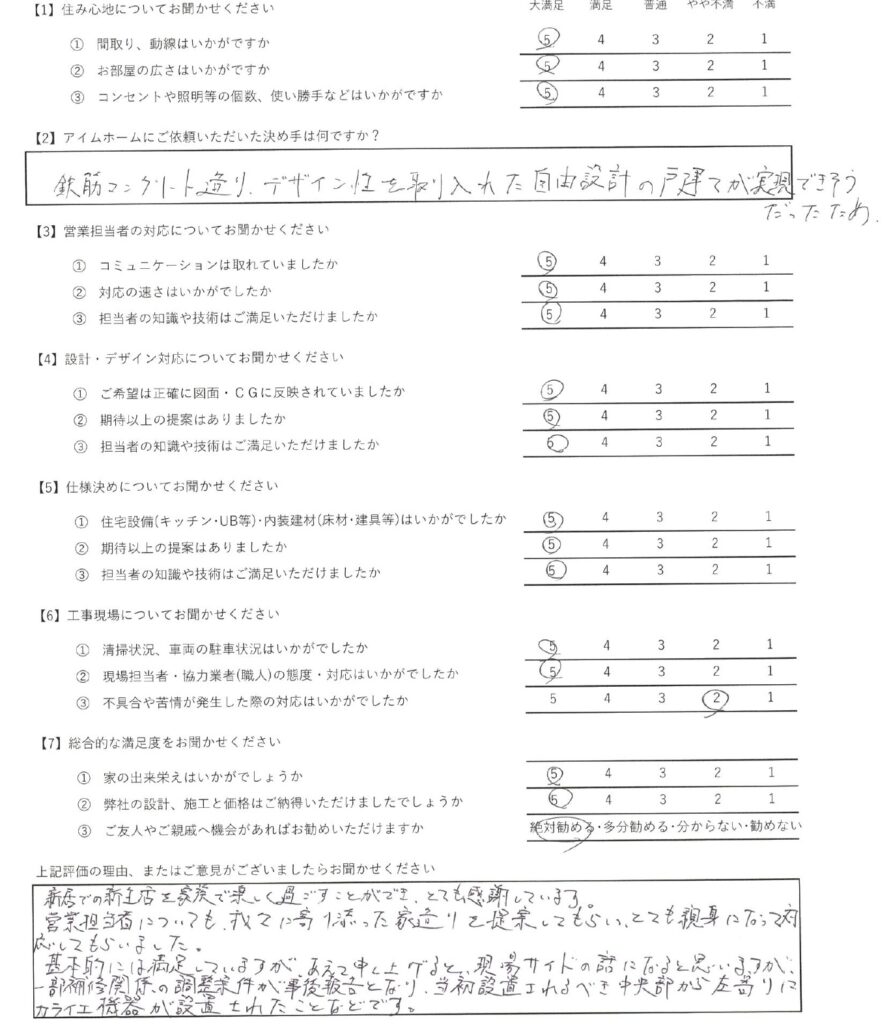 【1】住み心地についてお聞かせください 大満足 満足 普通 やや不満 不満
① 間取り、動線はいかがですか 5 4 3 2 1
② お部屋の広さはいかがですか 5 4 3 2 1
③ コンセントや照明等の個数、使い勝手などはいかがですか 5 4 3 2 1
【2】アイムホームにご依頼いただいた決め手は何ですか？
鉄筋コンクリート造り、デザイン性を取り入れた自由設計の戸建てが実現できそう
だったため。
【3】営業担当者の対応についてお聞かせください
① コミュニケーションは取れていましたか 5 4 3 2 1
② 対応の速さはいかがでしたか 5 4 3 2 1
③ 担当者の知識や技術はご満足いただけましたか 5 4 3 2 1
【4】設計・デザイン対応についてお聞かせください
① ご希望は正確に図面・ＣＧに反映されていましたか 5 4 3 2 1
② 期待以上の提案はありましたか 5 4 3 2 1
③ 担当者の知識や技術はご満足いただけましたか 5 4 3 2 1
【5】仕様決めについてお聞かせください
① 住宅設備(キッチン・UB等)・内装建材(床材・建具等)はいかがでしたか 5 4 3 2 1
② 期待以上の提案はありましたか 5 4 3 2 1
③ 担当者の知識や技術はご満足いただけましたか 5 4 3 2 1
【6】工事現場についてお聞かせください
① 清掃状況、車両の駐車状況はいかがでしたか 5 4 3 2 1
② 現場担当者・協力業者(職人)の態度・対応はいかがでしたか 5 4 3 2 1
③ 不具合や苦情が発生した際の対応はいかがでしたか 5 4 3 2 1
【7】総合的な満足度をお聞かせください
① 家の出来栄えはいかがでしょうか 5 4 3 2 1
② 弊社の設計、施工と価格はご納得いただけましたでしょうか 5 4 3 2 1
③ ご友人やご親戚へ機会があればお勧めいただけますか 絶対勧める・多分勧める・分からない・勧めない
上記評価の理由、またはご意見がございましたらお聞かせください
新居での新生活を家族で楽しく過ごすことができ、とても感謝しています。
営業担当者についても、我々に寄り添った家造りを提案してもらい、とても親身になって対
応してもらいました。
基本的には満足していますが、あえて申し上げると、現場サイドの話になると思いますが、
一部補修関係の調整案件が事後報告となり、当初設置されるべき中央部から左寄りに
カライエ機器が設置されたことなどです。